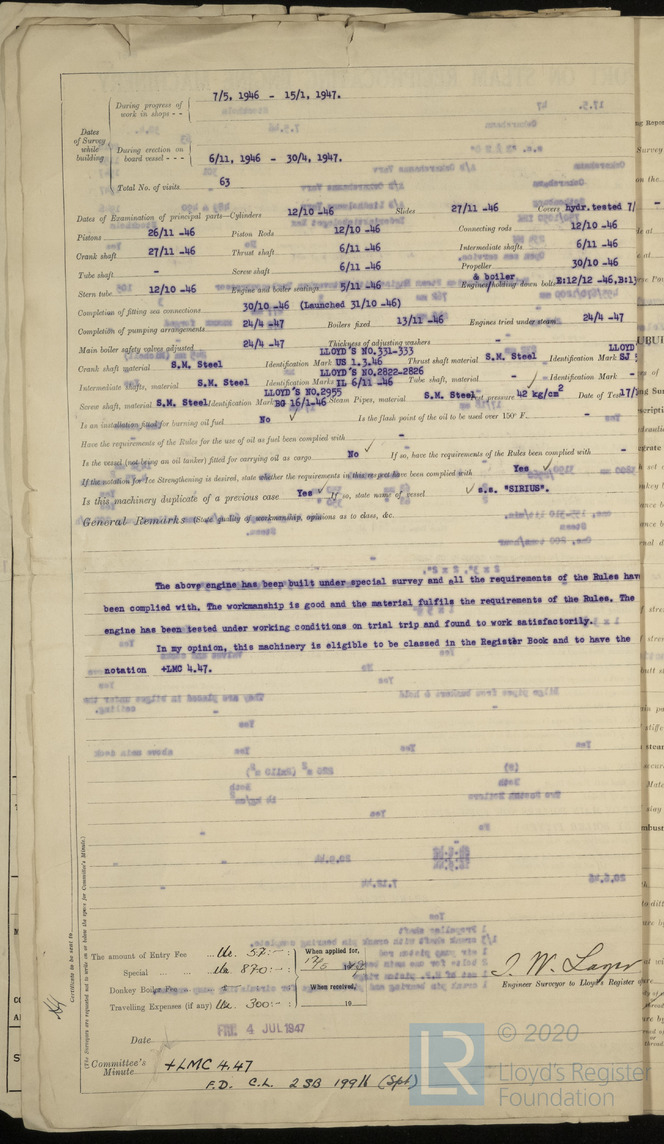 Dates of Survey while building
During progress of work in shops - - 7/5, 1946 - 15/1, 1947.
During erection on board vessel - - - 6/11, 1946 - 30/4, 1947.
Total No. of visits 63
Dates of Examination of principal parts—Cylinders 12/10 -46 Slides 27/11 -46 Covers hydr. tested 7/
Pistons 26/11 -46 Piston Rods 12/10 -46 Connecting rods 12/10 -46
Crank shaft 27/11 -46 Thrust shaft 6/11 -46 Intermediate shafts 6/11 -46
Tube shaft - Screw shaft 6/11 -46 Propeller 30/10 -46
Stern tube 12/10 -46 Engine and boiler seatings 5/11 -46 Engines & boiler holding down bolts E:12/12 -46, B:13
Completion of fitting sea connections 30/10 -46 (Launched 31/10 -46)
Completion of pumping arrangements 24/4 -47 Boilers fixed 13/11 -46 Engines tried under steam 24/4 -47
Main boiler safety valves adjusted 24/4 -47 Thickness of adjusting washers
Crank shaft material S.M. Steel Identification Mark LLOYD'S NO.331-333 US 1.3.46 Thrust shaft material S.M. Steel Identification Mark LLOYD SJ 5
Intermediate shafts, material S.M. Steel Identification Marks LLOYD'S NO.2822-2826 IL 6/11 -46 Tube shaft, material - Identification Mark -
Screw shaft, material S.M. Steel Identification Mark LLOYD'S NO.2955 BG 16/1 -46 Steam Pipes, material S.M. Steel Test pressure 42 kg/cm2 Date of Test 17/1
Is an installation fitted for burning oil fuel No Is the flash point of the oil to be used over 150° F. -
Have the requirements of the Rules for the use of oil as fuel been complied with -
Is the vessel (not being an oil tanker) fitted for carrying oil as cargo No If so, have the requirements of the Rules been complied with -
If the notation for Ice Strengthening is desired, state whether the requirements in this respect have been complied with Yes
Is this machinery duplicate of a previous case Yes If so, state name of vessel s.s. "SIRIUS".
General Remarks (State quality of workmanship, opinions as to class, &c.
The above engine has been built under special survey and all the requirements of the Rules have
been complied with. The workmanship is good and the material fulfils the requirements of the Rules. The
engine has been tested under working conditions on trial trip and found to work satisfactorily.
In my opinion, this machinery is eligible to be classed in the Register Book and to have the
notation +LMC 4.47.
Certificate to be sent to
(The Surveyors are requested not to write on or below the space for Committee's Minute.)
The amount of Entry Fee ... 52:- When applied for,
Special ... ... 870:-
Donkey Boiler Fee ... When received,
Travelling Expenses (if any) 300:- 19
Engineer Surveyor to Lloyd's Register
Date FRI. 4 JUL 1947
Committee's Minute +LMC 4.47
F.D. C.L. 2 SB 199 lb (Spt)
© 2020
LR
Lloyd's Register
Foundation